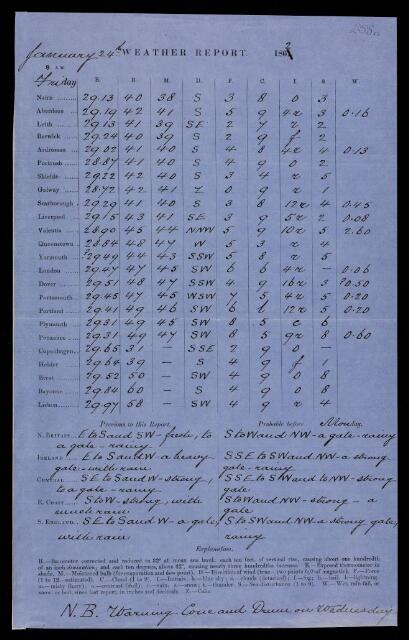 January 24th WEATHER REPORT. 1862
8 A.M.
Friday B. E. M. D. F. C. I. S. W.
Nairn 29.13 40 38 S 3 8 0 3
Aberdeen 29.19 42 41 S 5 9 4r 3 0.16
Leith 29.13 41 39 SE 2 7 r 2
Berwick 29.24 40 39 S 2 9 f 2
Ardrossan 29.02 41 40 S 4 8 4r 4 0.13
Portrush 28.87 41 40 S 4 9 0 2
Shields 29.22 42 40 S 3 4 r 5
Galway 28.72 42 41 Z 0 9 r 1
Scarborough 29.29 41 40 S 3 8 12r 4 0.45
Liverpool 29.15 43 41 SE 3 9 5r 2 0.08
Valentia 28.90 45 44 NNW 5 9 10r 5 2.60
Queenstown 28.84 48 47 W 5 3 r 4
Yarmouth 29.49 44 43 SSW 5 8 r 5
London 29.47 47 45 SW 6 6 4r — 0.06
Dover 29.51 48 47 SSW 4 9 16r 3 ?0.50
Portsmouth 29.45 47 45 WSW 7 5 4r 5 0.20
Portland 29.41 49 46 SW 6 6 12r 5 0.20
Plymouth 29.31 49 45 SW 8 5 c 6
Penzance 29.31 49 47 SW 8 5 9r 8 0.60
Copenhagen 29.65 31 — SSE 2 9 0 —
Helder 29.64 39 — S 4 9 f 1
Brest 29.52 50 — SW 4 9 0 8
Bayonne 29.84 60 — S 4 9 0 8
Lisbon 29.97 58 — SW 4 9 r 4
Previous to this Report. Probable before Monday.
N. BRITAIN. E to S and SW – fresh, to S to W and NW – a gale – rainy
a gale – rainy
IRELAND E to S and W – a heavy SSE to SW and NW – a strong
gale – with rain gale – rainy
CENTRAL SE to S and W – strong, SSE to SW and NW to strong
to a gale – rainy gale
E. COAST S to W – strong, with S to W and NW – strong – a
much rain gale
S. ENGLAND SE to S and W – a gale, S to SW and NW a strong gale,
with rain rainy
Explanation.
B.—Barometer corrected and reduced to 32° at mean sea level; each ten feet of vertical rise, causing about one hundredth
of an inch diminution, and each ten degrees, above 32°, causing nearly three hundredths increase. E.—Exposed thermometer in
shade. M.—Moistened bulb (for evaporation and dew point). D.—Direction of wind (true—two points left of magnetic). F.—Force
(1 to 12—estimated). C.—Cloud (1 to 9). I.—Initials.
N.B. Warning Cone and Drum on Wednesday